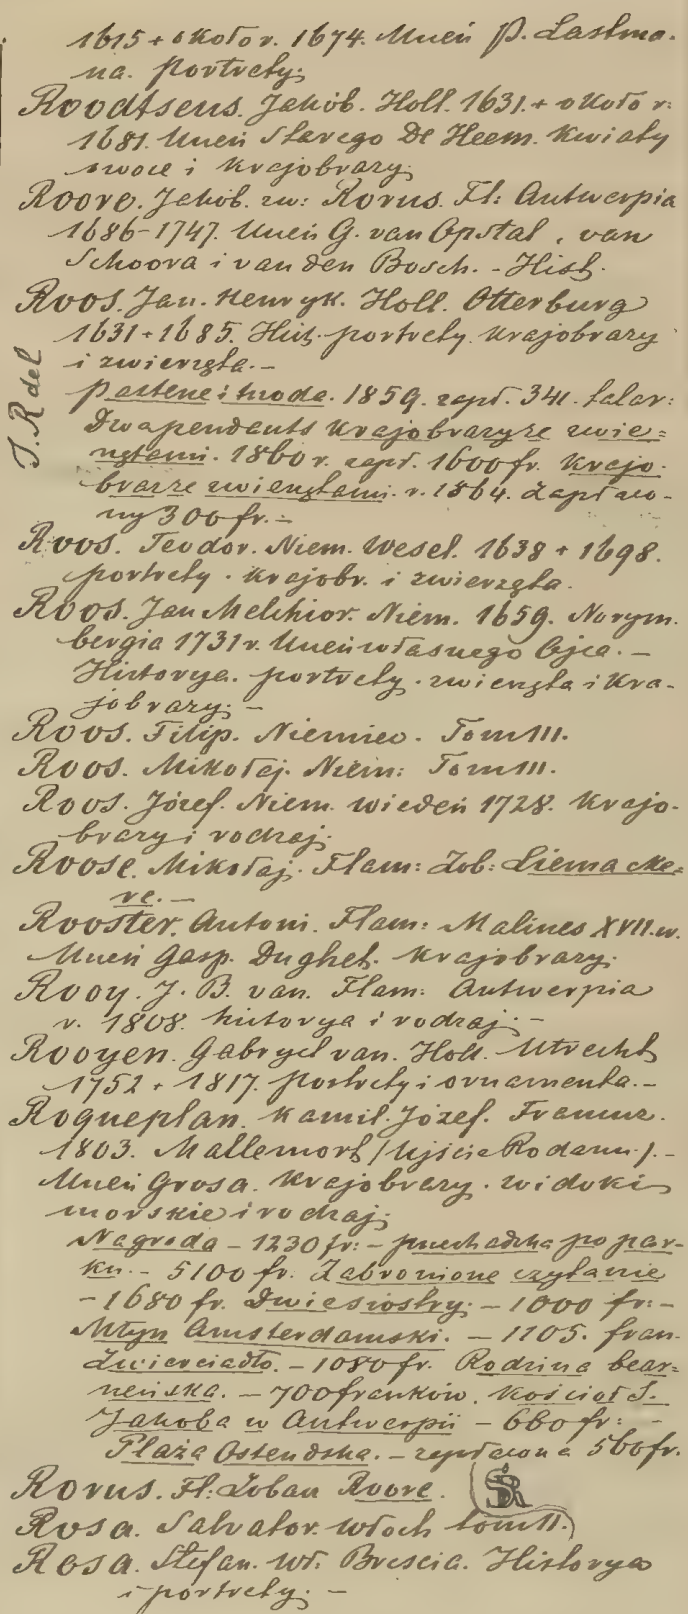 1615 + około r. 1674. Uczeń P. Lastma-
na. portrety.
Roodtseus. Jakób. Holl. 1631. + około r:
1681. Uczeń Starego De Heem. Kwiaty
owoce i krajobrazy.
Roore. Jakób. zw: Rorus. Fl: Antwerpia
1686-1747. Uczeń G. van Opstal, van
Schoora i van den Bosch. - Hist.
Roos. Jan. Henryk. Holl. Otterburg
1631 + 1685. Hist. portrety. krajobrazy
i zwierzęta. -
J. R del
pasterze i trzoda. 1859. zapł. 341. talar:
Dwa pendants krajobrazy ze zwie=
rzętami. 1860 r. zapł. 1600 fr. Krajo-
braz ze zwierzętami. r. 1864. zapłaco-
ny 300 fr. -
Roos. Teodor. Niem. Wesel. 1638 + 1698.
portrety. krajobr. i zwierzęta.
Roos. Jan Melchior. Niem. 1659. Norym.
bergia 1731 r. Uczeń własnego Ojca. -
Historya. portrety. zwierzęta i kra-
jobrazy. -
Roos. Filip. Niemiec. Tom III.
Roos. Mikołaj. Niem: Tom III.
Roos. Józef. Niem. Wiedeń 1728. Krajo-
brazy i rodzaj.
Roose. Mikołaj. Flam: Zob: Liemacke=
re. -
Rooster. Antoni. Flam: Malines XVII. w.
Uczeń Gasp. Dughet. Krajobrazy.
Rooy. J. B. van. Flam: Antwerpia
r. 1808. historya i rodzaj. -
Rooyen. Gabryel van. Holl. Utrecht
1752 + 1817. portrety i ornamenta. -
Roqueplan. Kamil. Józef. Francuz.
1803. Mallemort / Ujście Rodanu /. -
Uczeń Grosa. Krajobrazy. widoki
morskie i rodzaj.
Nagroda - 1230 fr: - przechadzka po par-
ku. - 5100 fr. Zabronione czytanie
- 1680 fr. Dwie siostry. - 1000 fr: -
Młyn Amsterdamski. - 1105. fran.
Zwierciadło. - 1080 fr. Rodzina bear=
neńska. - 700 franków. Kościół S.
Jakóba w Antwerpii - 660 fr: -
Plaża Ostendska. - zapłacona 560 fr.
Rorus. Fl: Zobacz Roore.
SR
Rosa. Salvator. włoch tom II.
Rosa. Stefan. Wł. Brescia. Historya
i portrety. -